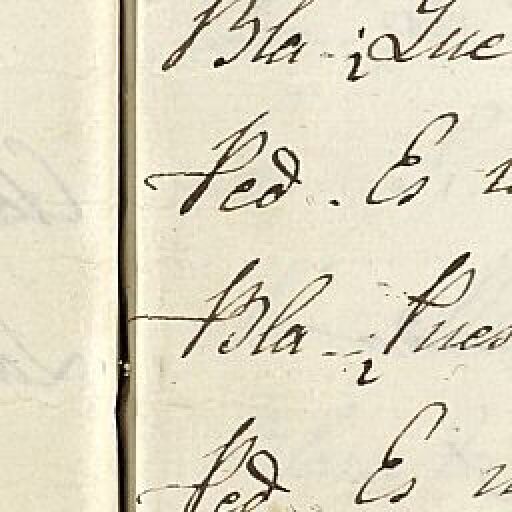 Bla - ¿Que
Ped. Es
Bla - ¿Pues
Ped Es